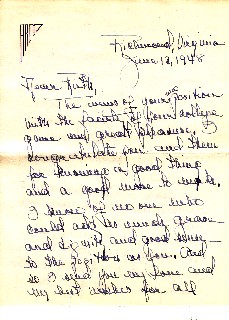 Richmond, Virginia
June 13, 1948
Dear Ruth,
The news of your new position
with the faculty of your college
gave me great pleasure. I
congratulate you and them
for knowing a good thing
and a good move to make.
I know of no one who
could add so much grace
and wit and good
to the position as you. And
so I send you my love and
my best wishes for all